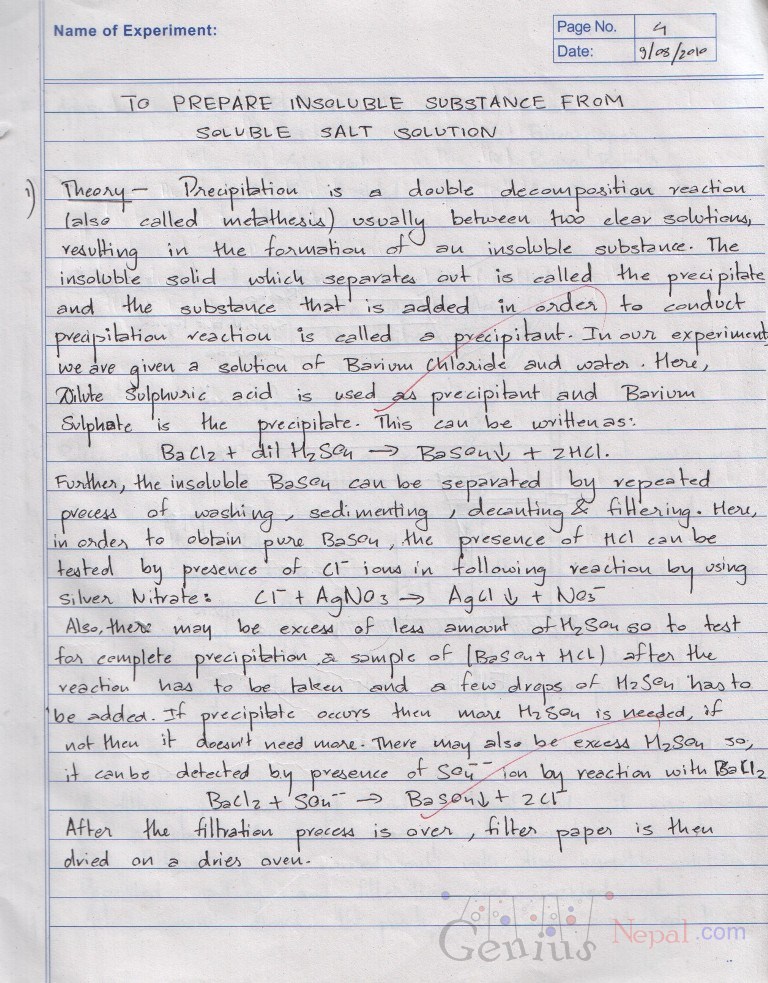 Name of Experiment:
Page No. 4
Date: 9/08/2010
TO PREPARE INSOLUBLE SUBSTANCE FROM
SOLUBLE SALT SOLUTION
1) Theory - Precipitation is a double decomposition reaction
(also called metathesis) usually between two clear solutions,
resulting in the formation of an insoluble substance. The
insoluble solid which separates out is called the precipitate
and the substance that is added in order to conduct
precipitation reaction is called a precipitant. In our experiment
we are given a solution of Barium Chloride and water. Here,
Dilute Sulphuric acid is used as precipitant and Barium
Sulphate is the precipitate. This can be written as:
BaCl2 + dil H2SO4 → BaSO4↓ + 2HCl.
Further, the insoluble BaSO4 can be separated by repeated
process of washing, sedimenting, decanting & filtering. Here,
in order to obtain pure BaSO4, the presence of HCl can be
tested by presence of Cl⁻ ions in following reaction by using
Silver Nitrate: Cl⁻ + AgNO3 → AgCl ↓ + NO3⁻
Also, there may be excess of less amount of H2SO4 so to test
for complete precipitation, a sample of (BaSO4 + HCl) after the
reaction has to be taken and a few drops of H2SO4 has to
be added. If precipitate occurs then more H2SO4 is needed, if
not then it doesn't need more. There may also be excess H2SO4 so,
it can be detected by presence of SO4⁻⁻ ion by reaction with BaCl2
BaCl2 + SO4⁻⁻ → BaSO4↓ + 2Cl⁻
After the filtration process is over, filter paper is then
dried on a dries oven.
Genius Nepal.com